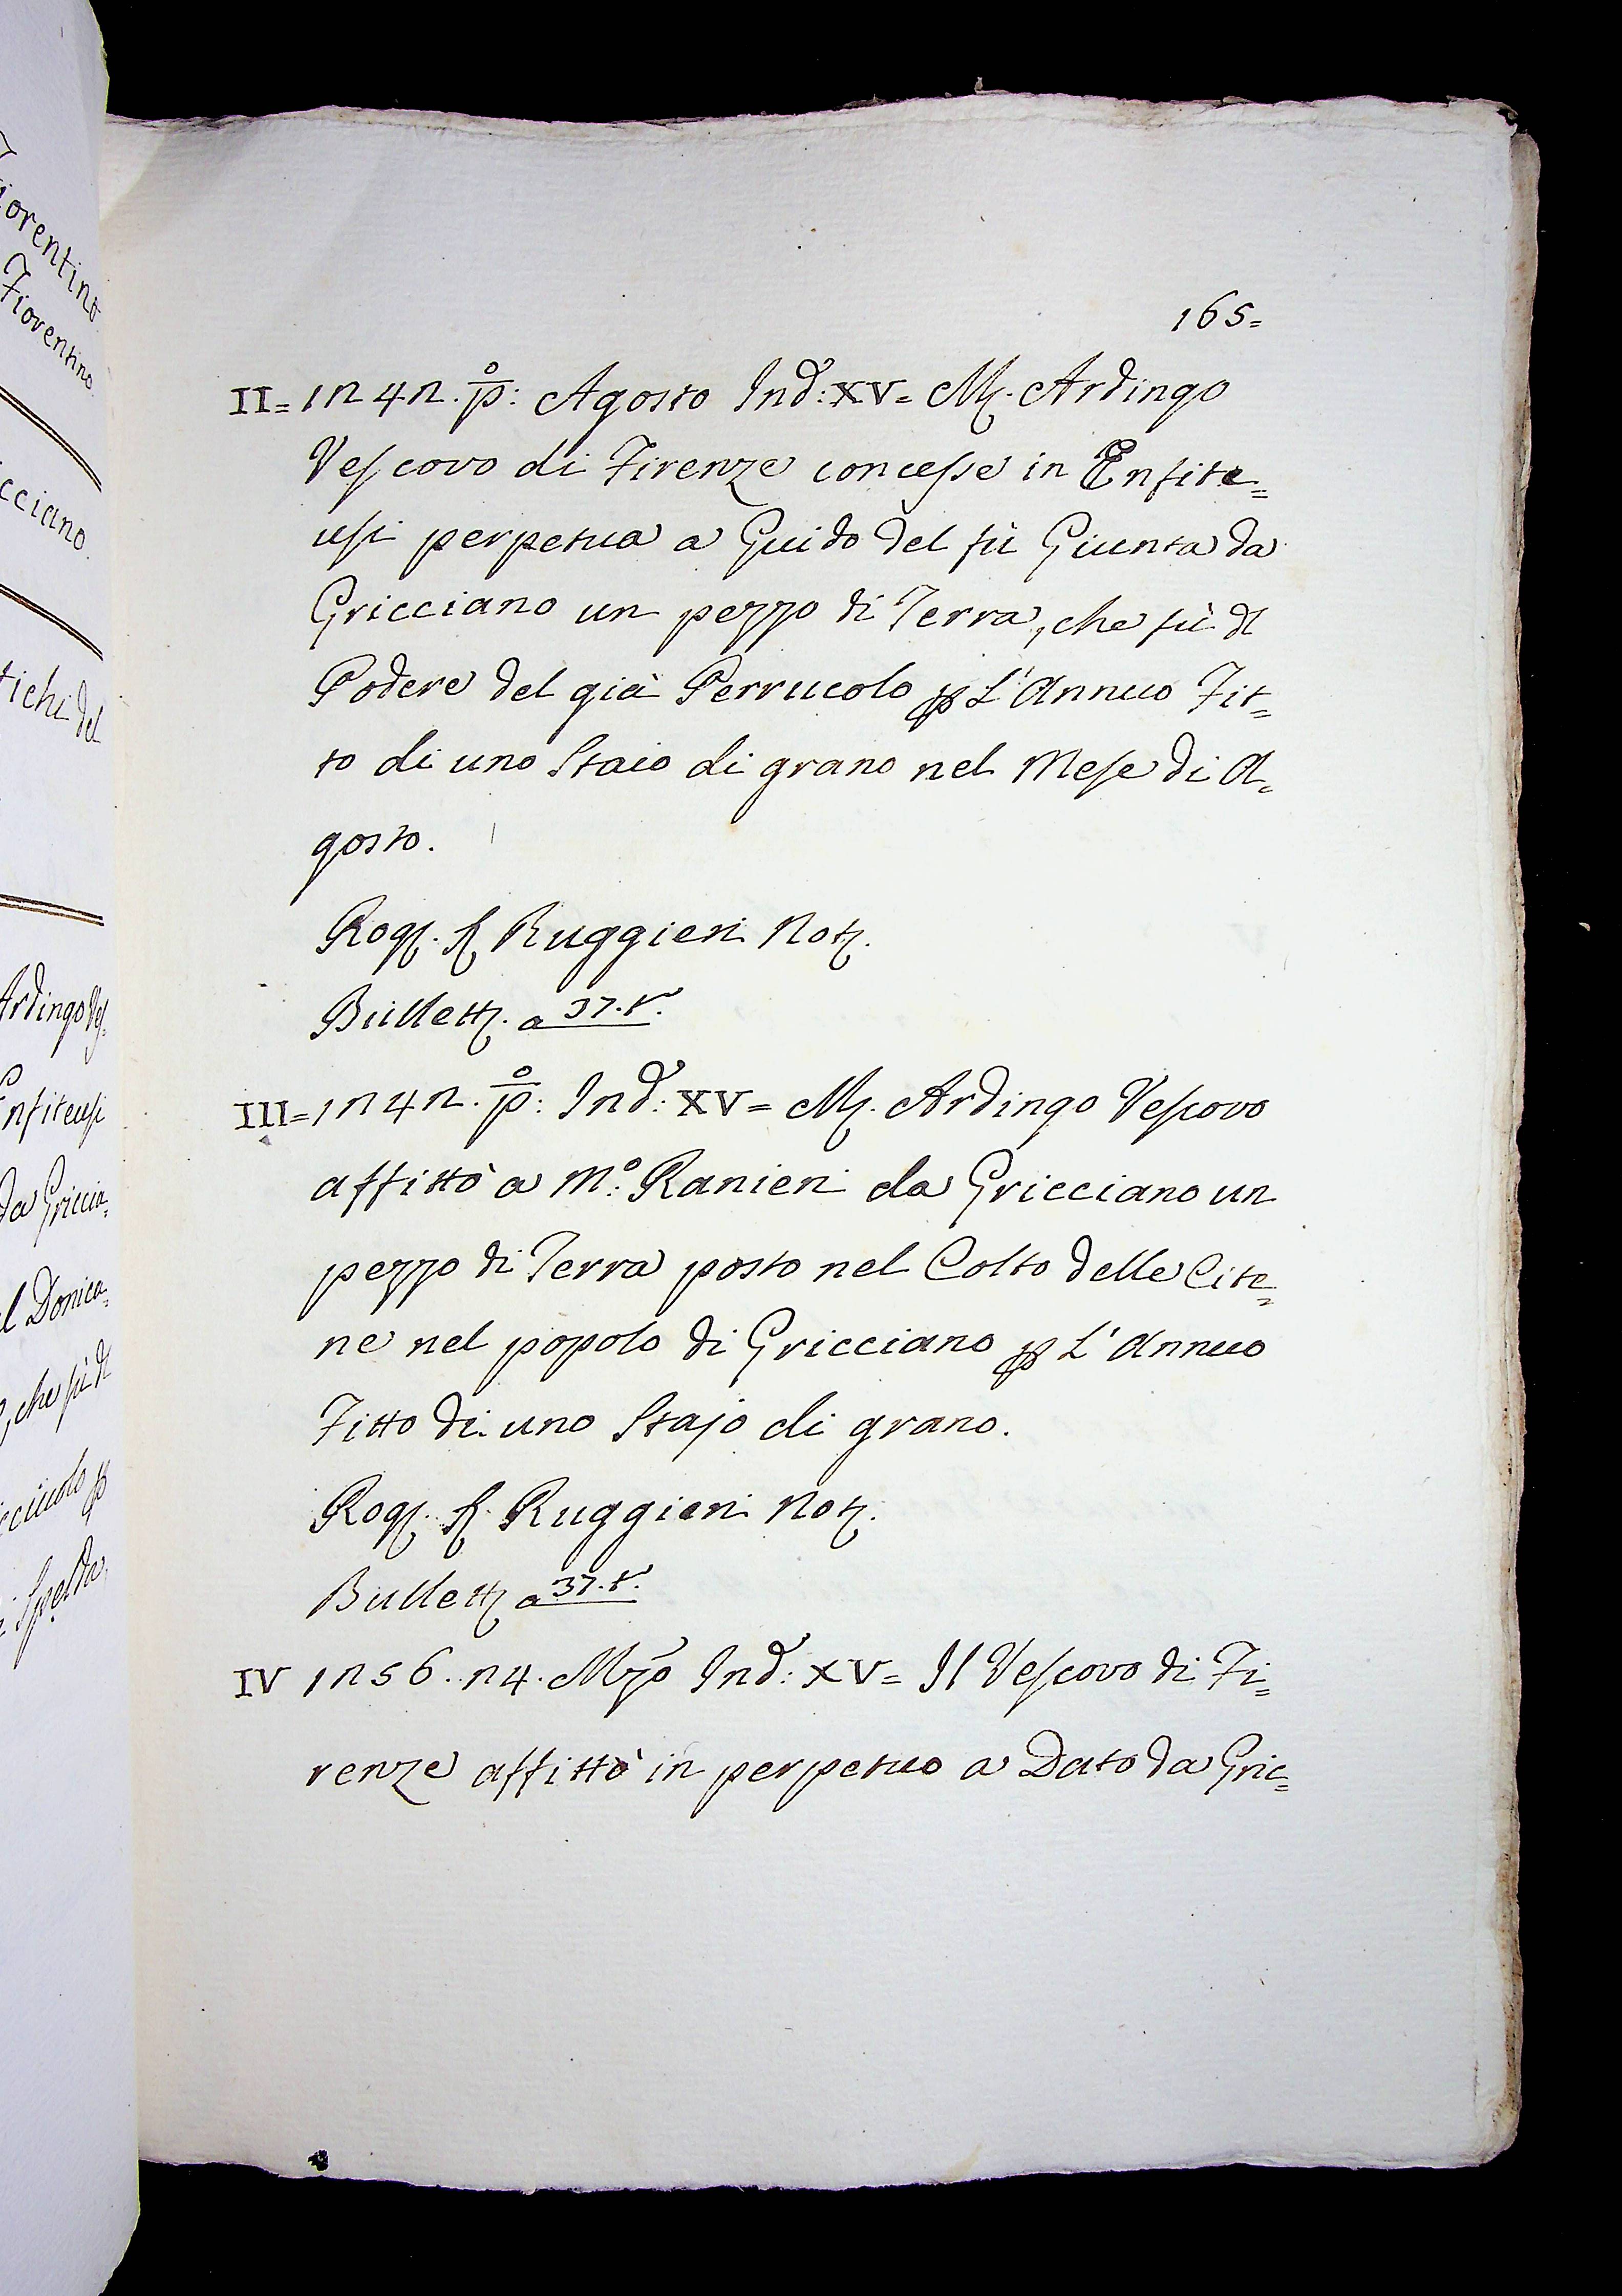 165=
II= 1242. p̊: Agosto Ind: XV= M. Ardingo
Vescovo di Firenze concesse in Enfite=
usi perpetua a Guido del fù Giunta da
Gricciano un pezzo di Terra, che fù dl
Podere del già Perrucolo p L'Annuo Fit=
to di uno Staio di grano nel Mese di A=
gosto.
Rog. S Ruggieri Not.
Bullett. a 37. t.
III= 1242. p̊: Ind: XV= M. Ardingo Vescovo
affittò a M.º Ranieri da Gricciano un
pezzo di Terra posto nel Colto delle Cite=
ne nel popolo di Gricciano p L'Annuo
Fitto di uno Stajo di grano.
Rog. S. Ruggieri Not.
Bullett a 37. t.
IV 1256. 24. Mzo Ind: XV= Il Vescovo di Fi=
renze affittò in perpetuo a Dato da Gric=
iorentino
Fiorentino
cciano.
tichi del
Ardingo Ves.
nfiteusi
da Griccia=
l Donica=
, che fù dl
cciuolo p
Spelda,